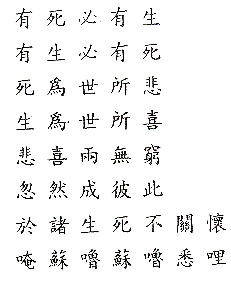 有死必有生
有生必有死
死爲世所悲
生爲世所喜
悲喜兩無窮
忽然成彼此
於諸生死不關懷
唵蘇嚕蘇嚕悉哩